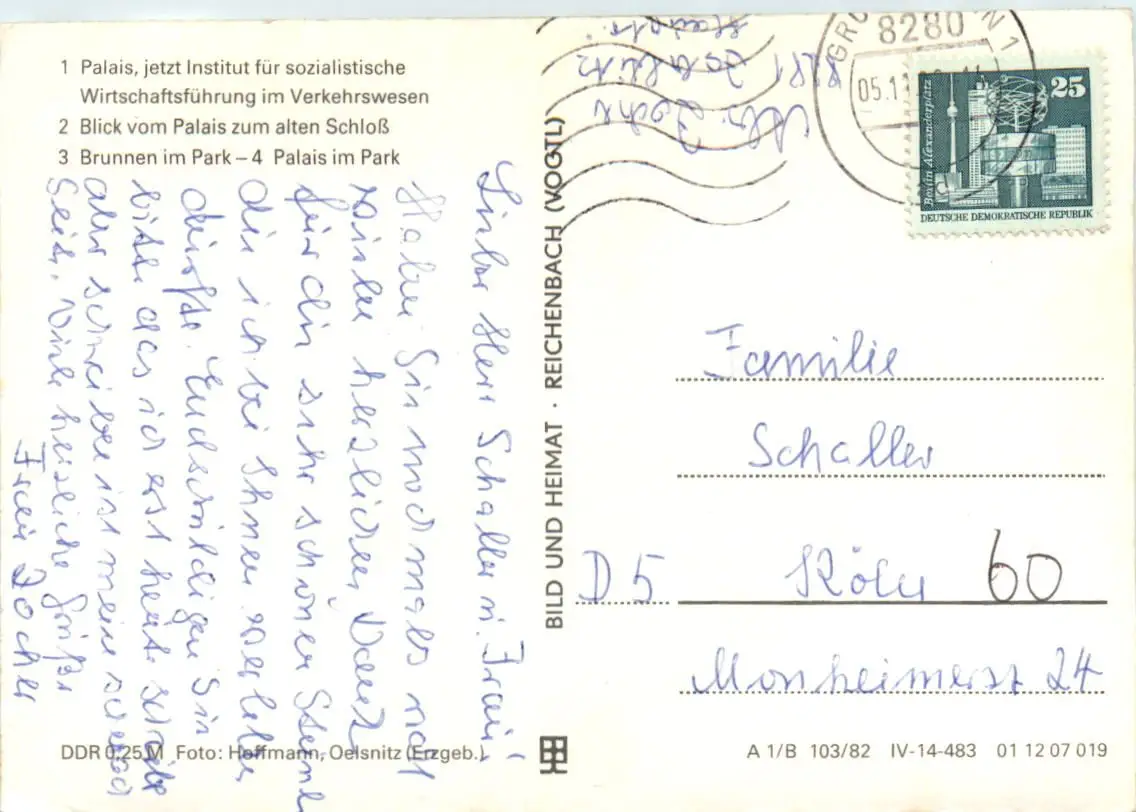 1 Palais, jetzt Institut für sozialistische
Wirtschaftsführung im Verkehrswesen
2 Blick vom Palais zum alten Schloß
3 Brunnen im Park – 4 Palais im Park
Lieber Herr Schaller u. Frau!
Haben Sie nochmals
vielen herzlichen Dank
für die sehr schönen
die ich bei Ihnen verlebte
dürfte. Endschuldigen Sie
bitte das ich erst heute schreibe
aber schreiben ist meine schwache
Seite. Viele herzliche Grüße
Frau Zocher
DDR 0,25 M Foto: Hoffmann, Oelsnitz (Erzgeb.)
BILD UND HEIMAT · REICHENBACH (VOGTL)
Zocher
8281 Zabeltitz
8280
05.11
25
Berlin, Alexanderplatz
DEUTSCHE DEMOKRATISCHE REPUBLIK
Familie
Schaller
D 5 Köln 60
Monheimerst 24
A 1/B 103/82 IV-14-483 01 12 07 019